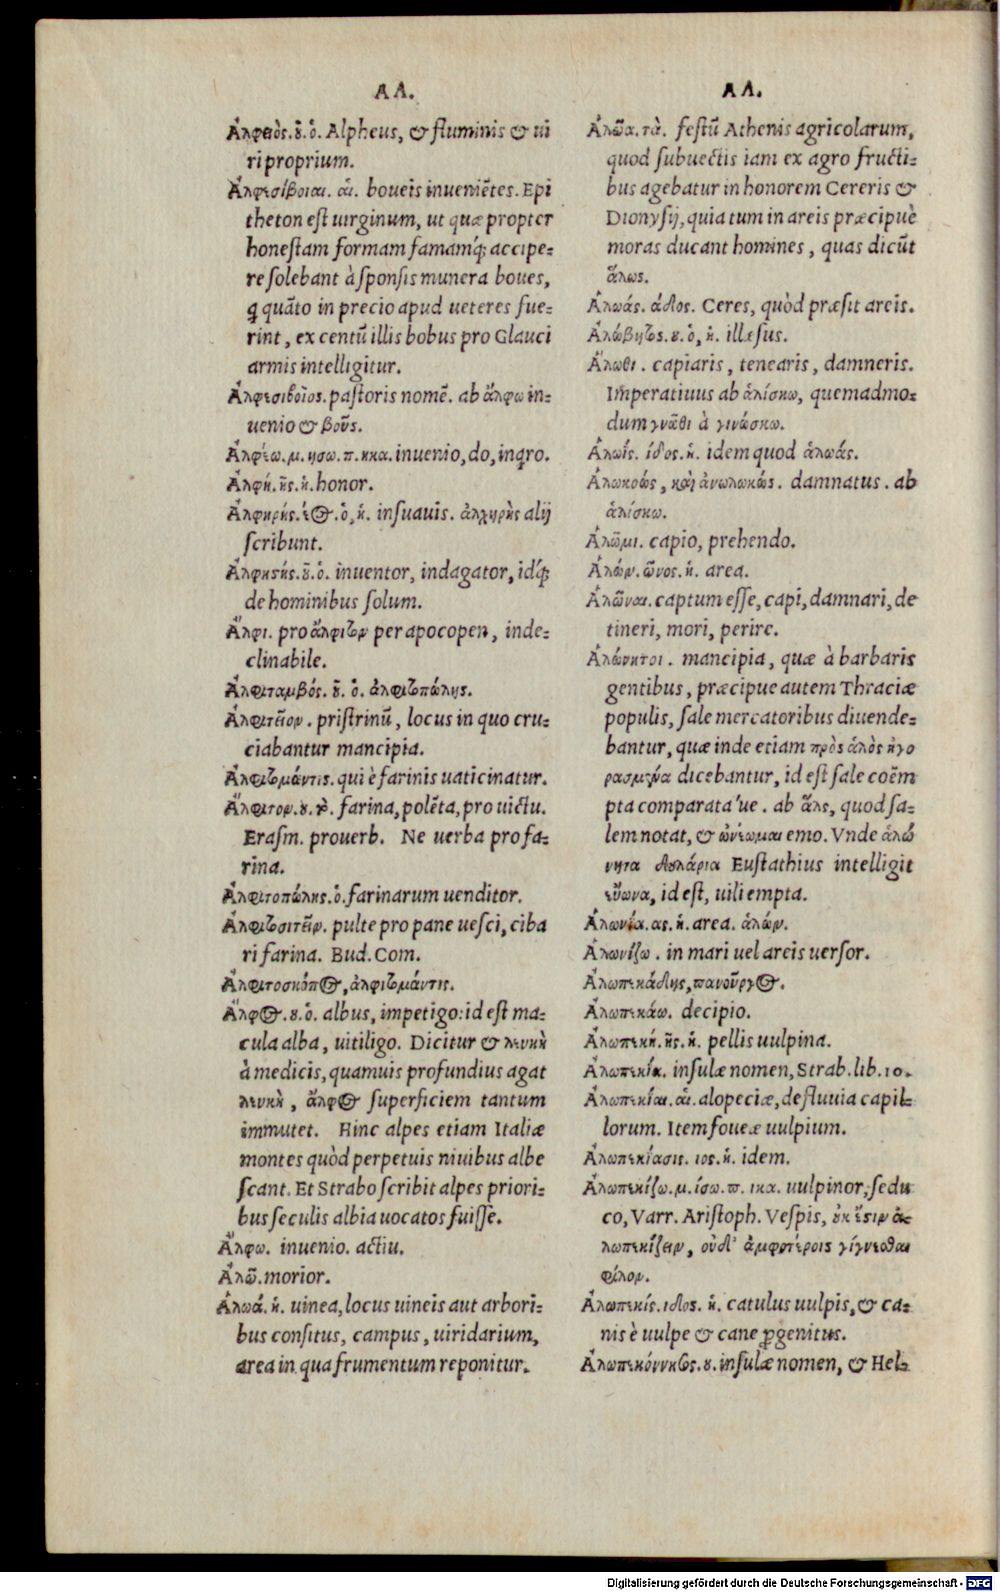 ΑΛ.
Ἀλφειὸς.ȣ͂.ὁ. Alpheus, & fluminis & ui
ri proprium.
Ἀλφεσίβοιαι. αἱ. boueis inueniẽtes. Epi
theton est uirginum, ut quæ propter
honestam formam famamq́; accipe=
re solebant à sponsis munera boues,
q̃ quãto in precio apud ueteres fue=
rint, ex centũ illis bobus pro Glauci
armis intelligitur.
Ἀλφεσιβοῖος. pastoris nomẽ. ab ἄλφω in=
uenio & βοῦς.
Ἀλφέω.μ.ησω.π.ηκα. inuenio, do, inqro.
Ἀλφή.ῆς.ἡ. honor.
Ἀλφηρής.έος.ὁ,ἡ. insuauis. ἀλχηρὴς alij
scribunt.
Ἀλφηστής.ȣ͂.ὁ. inuentor, indagator, idq́;
de hominibus solum.
Ἄλφι. pro ἄλφιτον per apocopen, inde=
clinabile.
Ἀλφιταμοιβός. ȣ͂. ὁ. ἀλφιτοπώλης.
Ἀλφιτεῖον. pristrinũ, locus in quo cru=
ciabantur mancipia.
Ἀλφιτομάντις. qui è farinis uaticinatur.
Ἄλφιτον.ȣ.τὸ. farina, polẽta, pro uictu.
Erasm. prouerb. Ne uerba pro fa=
rina.
Ἀλφιτοπώλης.ὁ. farinarum uenditor.
Ἀλφιτοσιτεῖν. pulte pro pane uesci, ciba
ri farina. Bud. Com.
Ἀλφιτοσκόπος, ἀλφιτομάντις.
Ἄλφος.ȣ.ὁ. albus, impetigo: id est ma=
cula alba, uitiligo. Dicitur & λευκὴ
à medicis, quamuis profundius agat
λευκὴ, ἄλφος superficiem tantum
immutet. Hinc alpes etiam Italiæ
montes quòd perpetuis niuibus albe
scant. Et Strabo scribit alpes priori=
bus seculis albia uocatos fuisse.
Ἄλφω. inuenio. actiu.
Ἀλῶ. morior.
Ἀλωά. ἡ. uinea, locus uineis aut arbori=
bus consitus, campus, uiridarium,
area in qua frumentum reponitur.
ΑΛ.
Ἀλῶα.τὰ. festũ Athenis agricolarum,
quod subuectis iam ex agro fructi=
bus agebatur in honorem Cereris &
Dionysij, quia tum in areis præcipuè
moras ducant homines, quas dicũt
ἅλως.
Ἀλωάς. άδος. Ceres, quòd præsit areis.
Ἀλώβητος.ȣ.ὁ,ἡ. illæsus.
Ἄλωθι. capiaris, tenearis, damneris.
Imperatiuus ab ἁλίσκω, quemadmo=
dum γνῶθι à γινώσκω.
Ἀλωΐς. ίδος.ἡ. idem quod ἀλωάς.
Ἀλωκοώς, καὶ ἀνωλωκώς. damnatus. ab
ἁλίσκω.
Ἀλῶμι. capio, prehendo.
Ἀλών. ῶνος.ἡ. area.
Ἀλῶναι. captum esse, capi, damnari, de
tineri, mori, perire.
Ἀλώνητοι. mancipia, quæ à barbaris
gentibus, præcipue autem Thraciæ
populis, sale mercatoribus diuende=
bantur, quæ inde etiam πρὸς ἁλὸς ἠγο
ρασμένα dicebantur, id est sale coẽm
pta comparata´ue. ab ἅλς, quod sa=
lem notat, & ὠνέομαι emo. Vnde ἁλώ
νητα δουλάρια Eustathius intelligit
εὔωνα, id est, uili empta.
Ἀλωνία.ας.ἡ. area. ἁλών.
Ἀλωνίζω. in mari uel areis uersor.
Ἀλωπεκάδης, πανοῦργος.
Ἀλωπεκάω. decipio.
Ἀλωπεκή.ῆς.ἡ. pellis uulpina.
Ἀλωπεκία. insulæ nomen, Strab. lib. 10.
Ἀλωπεκίαι.αἱ. alopeciæ, defluuia capil=
lorum. Item foueæ uulpium.
Ἀλωπεκίασις. ιος.ἡ. idem.
Ἀλωπεκίζω.μ.ίσω.π. ικα. uulpinor, sedu
co, Varr. Aristoph. Vespis, ȣκ ἔστιν ἀ=
λωπεκίζειν, οὐδ᾽ ἀμφοτέροις γίγνεσθαι
φίλον.
Ἀλωπεκίς.ιδος. ἡ. catulus uulpis, & ca=
nis è uulpe & cane ꝓgenitus.
Ἀλωπεκόννησος.ȣ. insulæ nomen, & Hel=
Digitalisierung gefördert durch die Deutsche Forschungsgemeinschaft - DFG